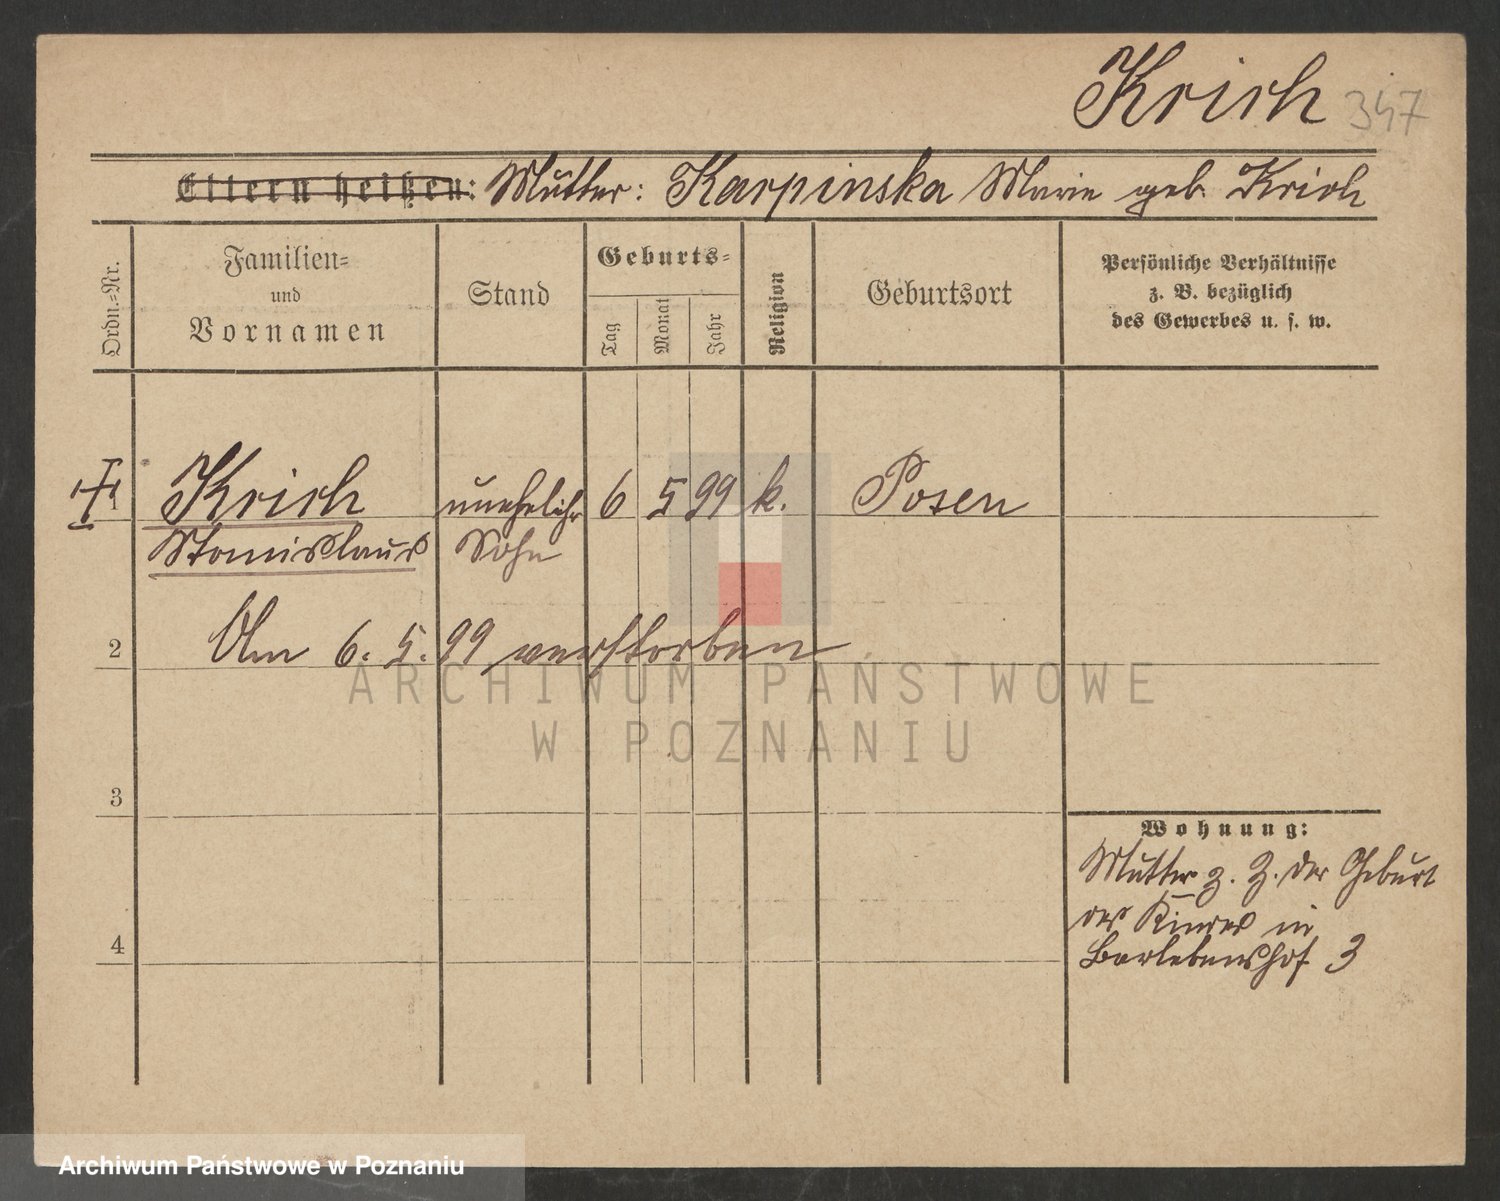 Krich 347
Eltern heißen: Mutter: Karpinska Marie geb. Krich
Ordn.-Nr.
Familien-
und
Vornamen
Stand
Geburts-
Tag
Monat
Jahr
Religion
Geburtsort
Persönliche Verhältnisse
z. B. bezüglich
des Gewerbes u. s. w.
1 Krich unehelich 6 5 99 k. Posen
Stanislaus Sohn
2 Am 6. 5. 99 verstorben
ARCHIWUM PAŃSTWOWE
W POZNANIU
3
Wohnung:
Mutter z. Z. der Geburt
des Kindes in
4
Barlebenshof 3
Archiwum Państwowe w Poznaniu